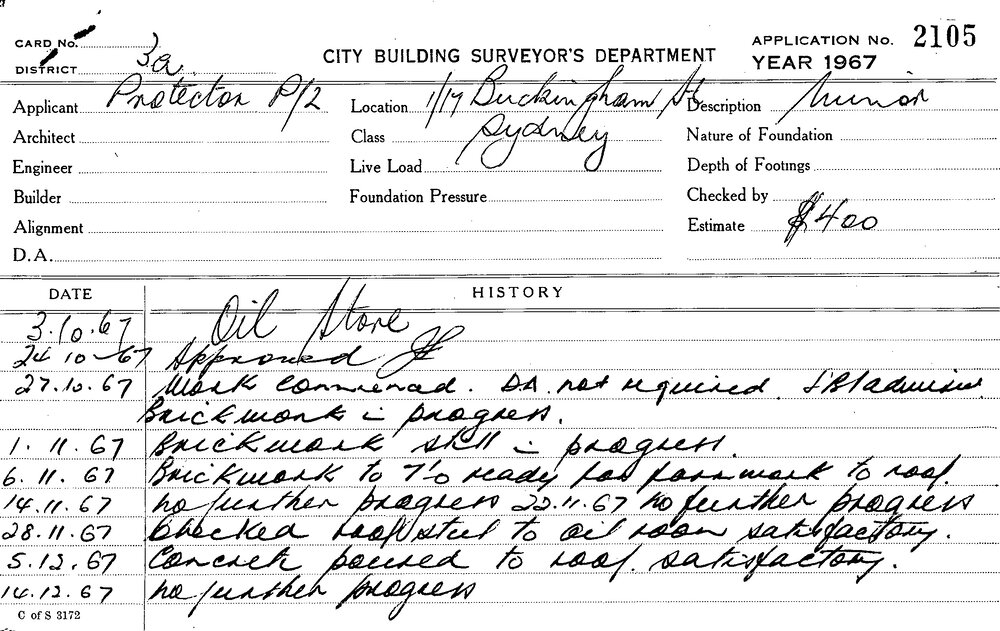 CARD No.
DISTRICT 3a
CITY BUILDING SURVEYOR'S DEPARTMENT
APPLICATION No. 2105
YEAR 1967
Applicant Protector P/L
Location 1/17 Buckingham St
Description Minor
Architect
Class Sydney
Nature of Foundation
Engineer
Live Load
Depth of Footings
Builder
Foundation Pressure
Checked by
Alignment
Estimate $400
D.A.
DATE HISTORY
3.10.67 Oil Store
24 10-67 Approved
27.10.67 Work commenced. DA. not required.
Brickwork in progress.
1.11.67 Brickwork still in progress.
6.11.67 Brickwork to 7'0 ready for formwork to roof.
14.11.67 no further progress 22.11.67 no further progress
28.11.67 Checked roof steel to oil room satisfactory.
5.12.67 Concrete poured to roof. satisfactory.
14.12.67 no further progress
C of S 3172